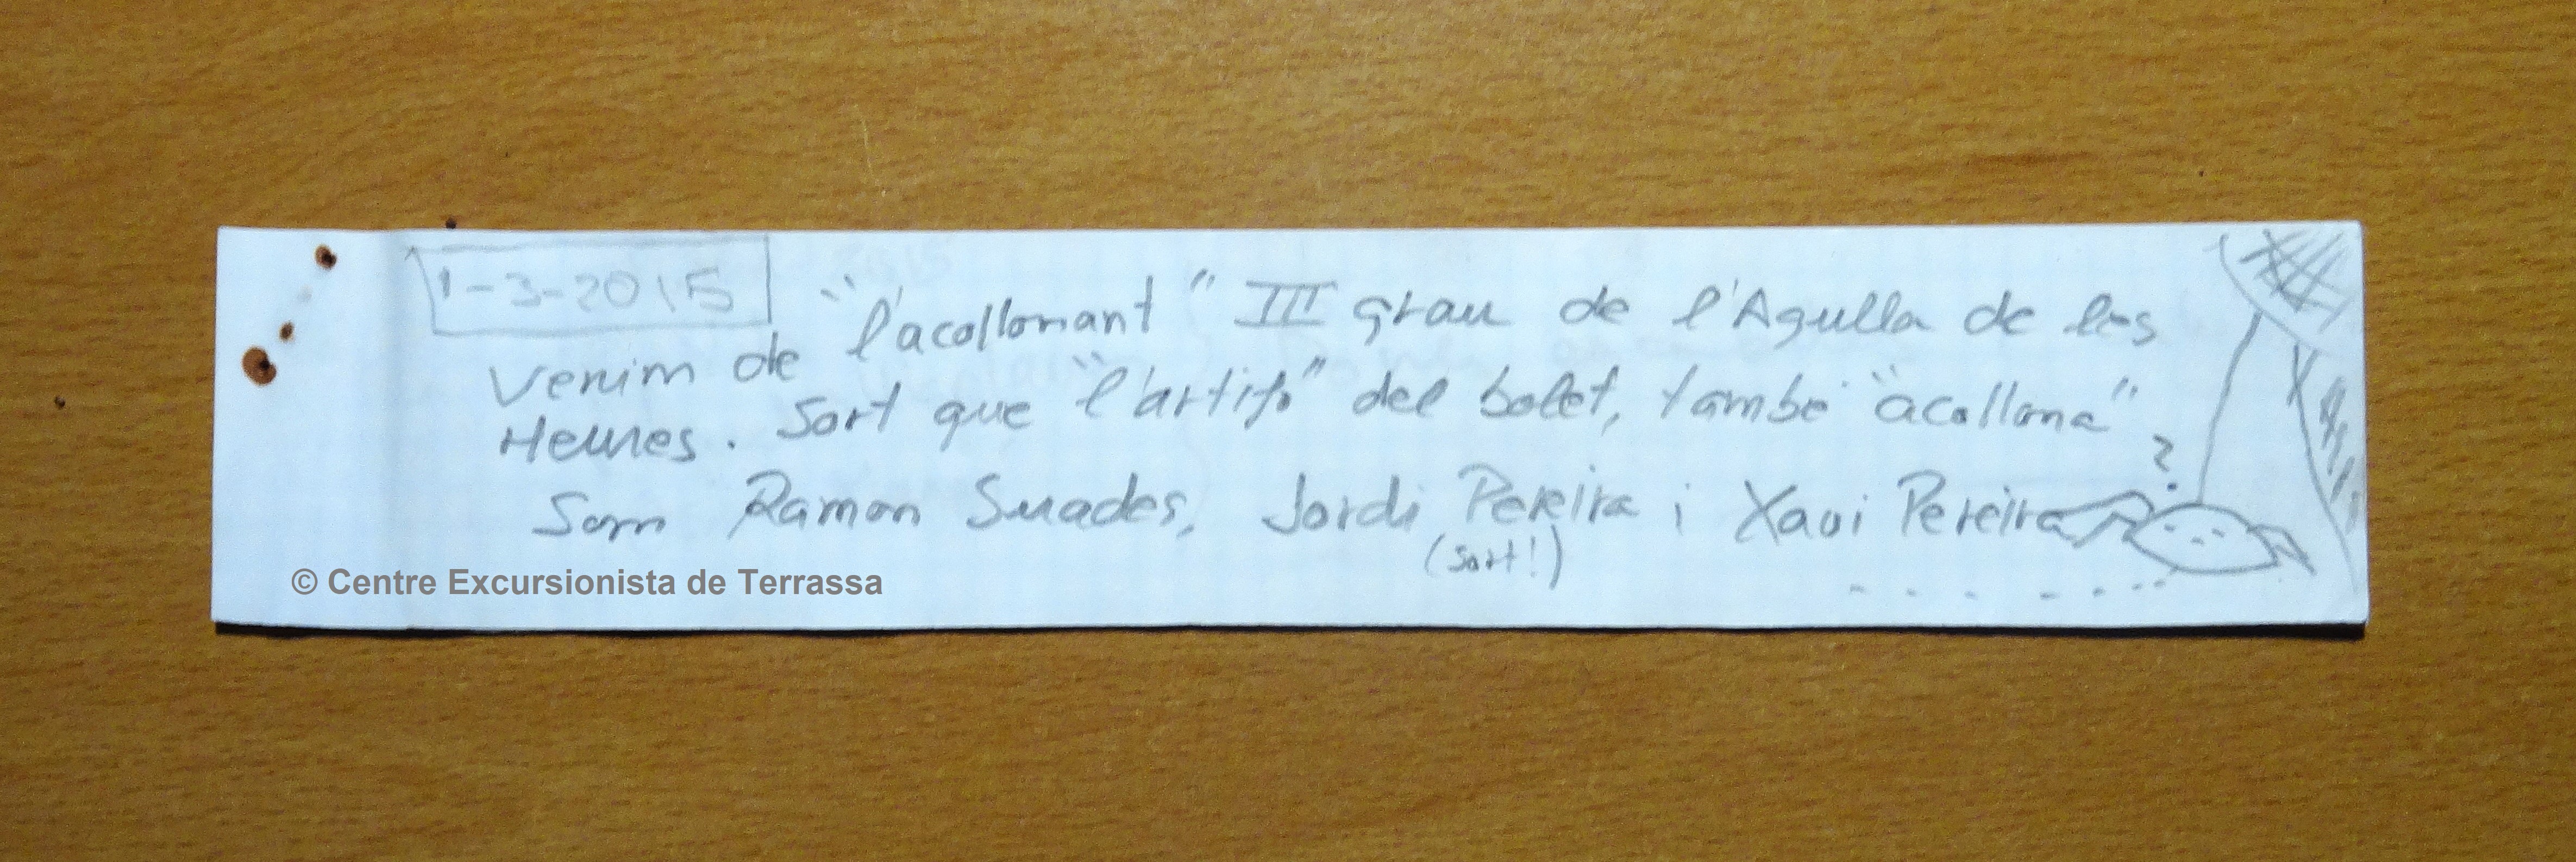 1-3-2015
Venim de "l'acollonant" III grau de l'Agulla de les
Heures. Sort que "l'artifo" del bolet, també "acollona"
?
Som Ramon Suades, Jordi Pereira i Xavi Pereira
(sort!)
© Centre Excursionista de Terrassa